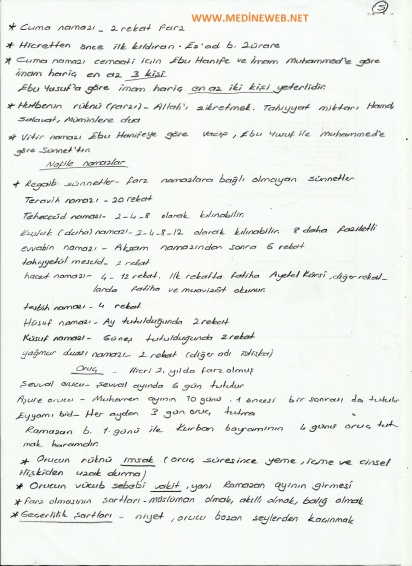 www.MEDİNEWEB.NET
3
* Cuma namazı - 2 rekat farz
* Hicretten önce ilk kıldıran - Es'ad b. Zürare
* Cuma namazı cemaati için Ebu Hanife ve imam Muhammed'e göre
imam hariç en az 3 kişi
Ebu Yusuf'a göre imam hariç en az iki kişi yeterlidir.
* Hutbenin rüknü (farzı) - Allah'ı zikretmek. Tahiyyat miktarı Hamd,
salavat, Müminlere dua
* Vitir namazı Ebu Hanifeye göre vacip, Ebu Yusuf ile Muhammed'e
göre Sünnet'tir.
Nafile namazlar
* Regaib sünnetler - farz namazlara bağlı olmayan sünnetler
Teravih namazı - 20 rekat
Teheccüd namazı - 2-4-8 olarak kılınabilir.
Kuşluk (duha) namazı - 2-4-8-12 olarak kılınabilir 8 daha faziletli
evvabin namazı - Akşam namazından sonra 6 rekat
tahiyyetül mescid - 2 rekat
hacet namazı - 4 - 12 rekat. ilk rekatta fatiha Ayetel Kürsi, diğer rekat-
larda fatiha ve muavizat okunur.
tesbih namazı - 4 rekat
Hüsuf namazı - Ay tutulduğunda 2 rekat
Küsuf namazı - Güneş tutulduğunda 2 rekat
yağmur duası namazı - 2 rekat (diğer adı istiska)
Oruç - Hicri 2. yılda farz olmuş
Şevval orucu - Şevval ayında 6 gün tutulur
Aşure orucu - Muharrem ayının 10 günü. 1 öncesi bir sonrası da tutulur
Eyyamı bid - Her ayden 3 gün oruç tutma
Ramazan b. 1. günü ile Kurban bayramının 4 günü oruç tut
mak haramdır.
* Orucun rüknü imsak (oruç süresince yeme, içme ve cinsel
ilişkiden uzak durma)
* Orucun vücub sebebi vakit, yani Ramazan ayının girmesi
* farz olmasının şartları - müslüman olmak, akıllı olmak, balığ olmak
* Geçerlilik şartları - niyet, orucu bozan şeylerden kaçınmak